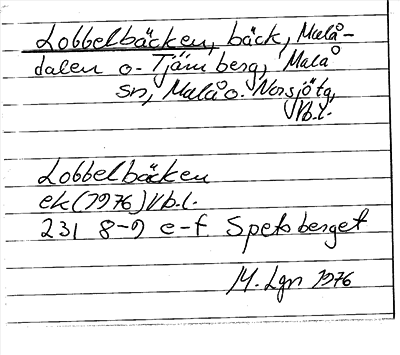 Lobbelbäcken, bäck, Malå-
dalen o. Tjärnberg, Malå
sn, Malå o. Norsjötg,
Vb.l.
Lobbelbäcken
ek (1976) Vb.l.
231 8-9 e-f Spetsberget
M. Lgn 1976